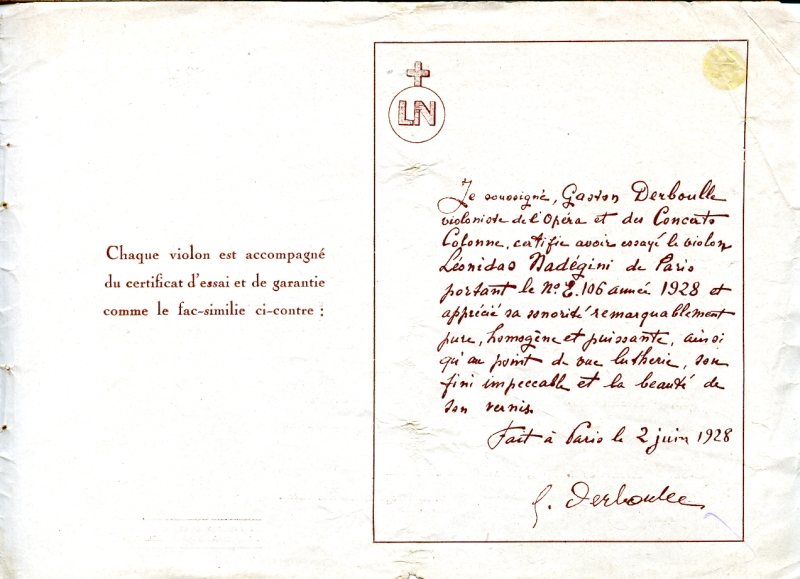 Chaque violon est accompagné
du certificat d'essai et de garantie
comme le fac-similie ci-contre :
LN
Je soussigné, Gaston Derboulle
violoniste de l'Opéra et des Concerts
Colonne, certifie avoir essayé le violon
Léonidas Nadégini de Paris
portant le No. E. 106 année 1928 et
apprécié sa sonorité remarquablement
pure, homogène et puissante, ainsi
qu'au point de vue lutherie, son
fini impeccable et la beauté de
son vernis.
Fait à Paris le 2 juin 1928
G. Derboulle